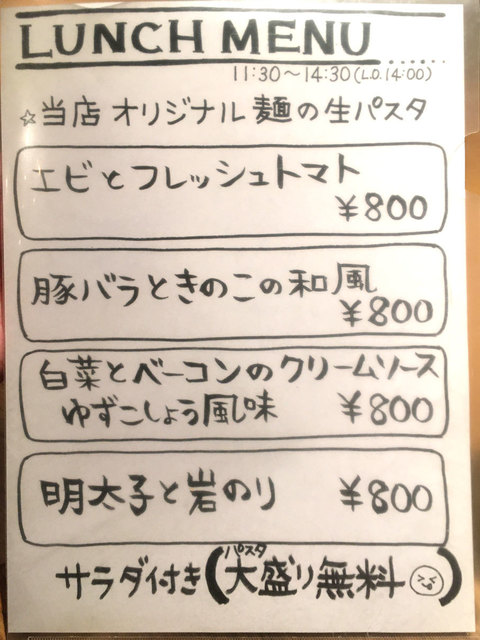 LUNCH MENU
11:30～14:30(L.O.14:00)
☆当店 オリジナル 麺の生パスタ
エビとフレッシュトマト
¥800
豚バラときのこの和風
¥800
白菜とベーコンのクリームソース
ゆずこしょう風味 ¥800
明太子と岩のり ¥800
パスタ
サラダ付き(大盛り無料)